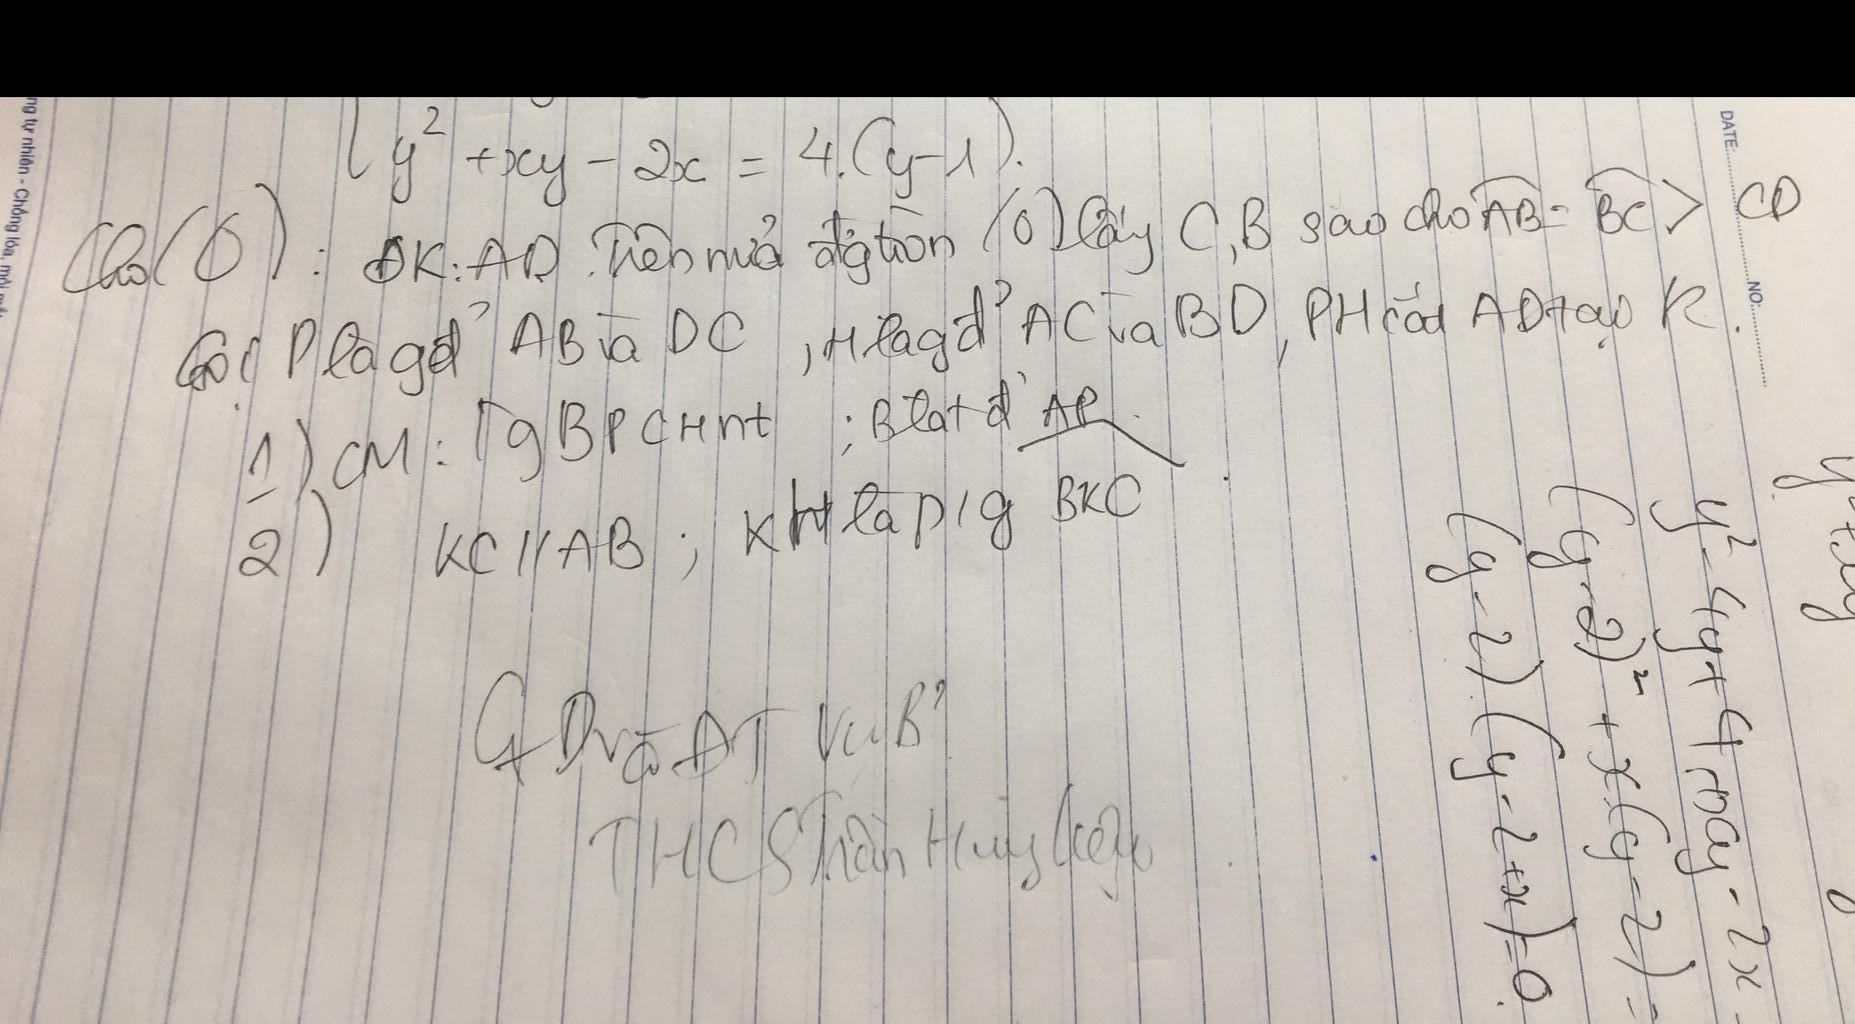 y² + xy - 2x = 4.(y-1).
Cho (O): ĐK: AD. Trên nửa đg tròn (O) lấy C, B sao cho AB = BC > CD
Gọi P là gđ' AB và DC, H là gđ' AC và BD, PH cắt AD tại K.
1) CM: Tg BPCH nt ; B là t đ' AP.
2) KC // AB ; KH là p/g BKC
GD và ĐT Vụ B'
THCS Trần Huy Liệu
DATE:
NO:
y² - 4y + 4 + xy - 2x
(y-2)² + x(y-2) =
(y-2)(y-2+x) = 0